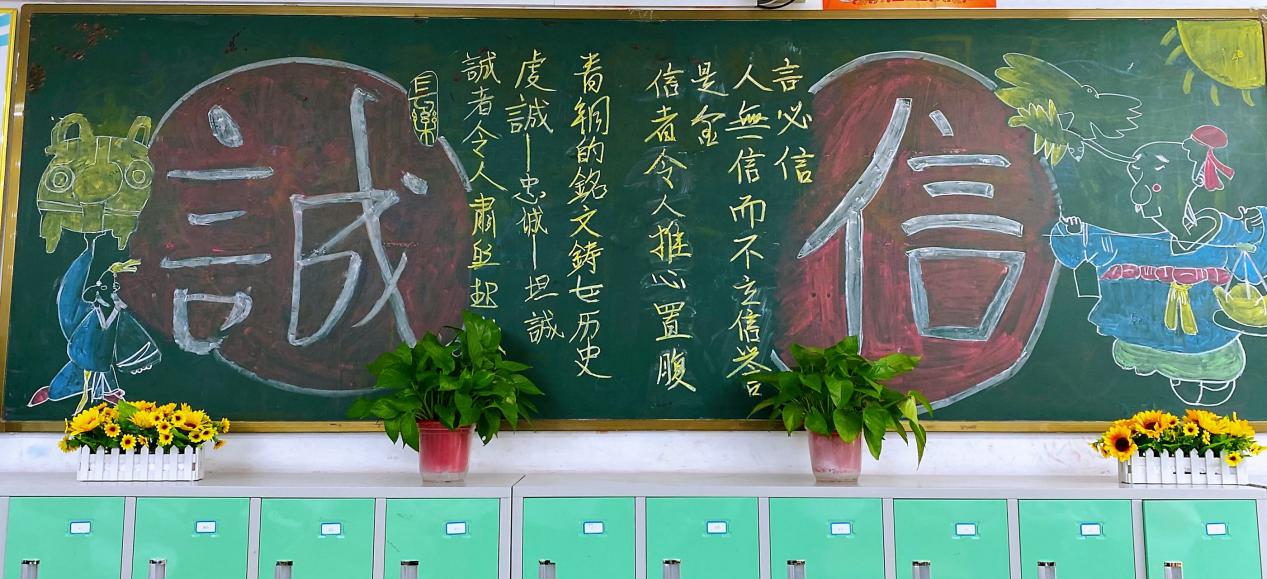 信
言必信
人無信而不立信誉
是金
信者令人推心置腹
青銅的銘文鋳女历史
虔誠—忠诚—坦誠
誠者令人肅然起
長樂
誠